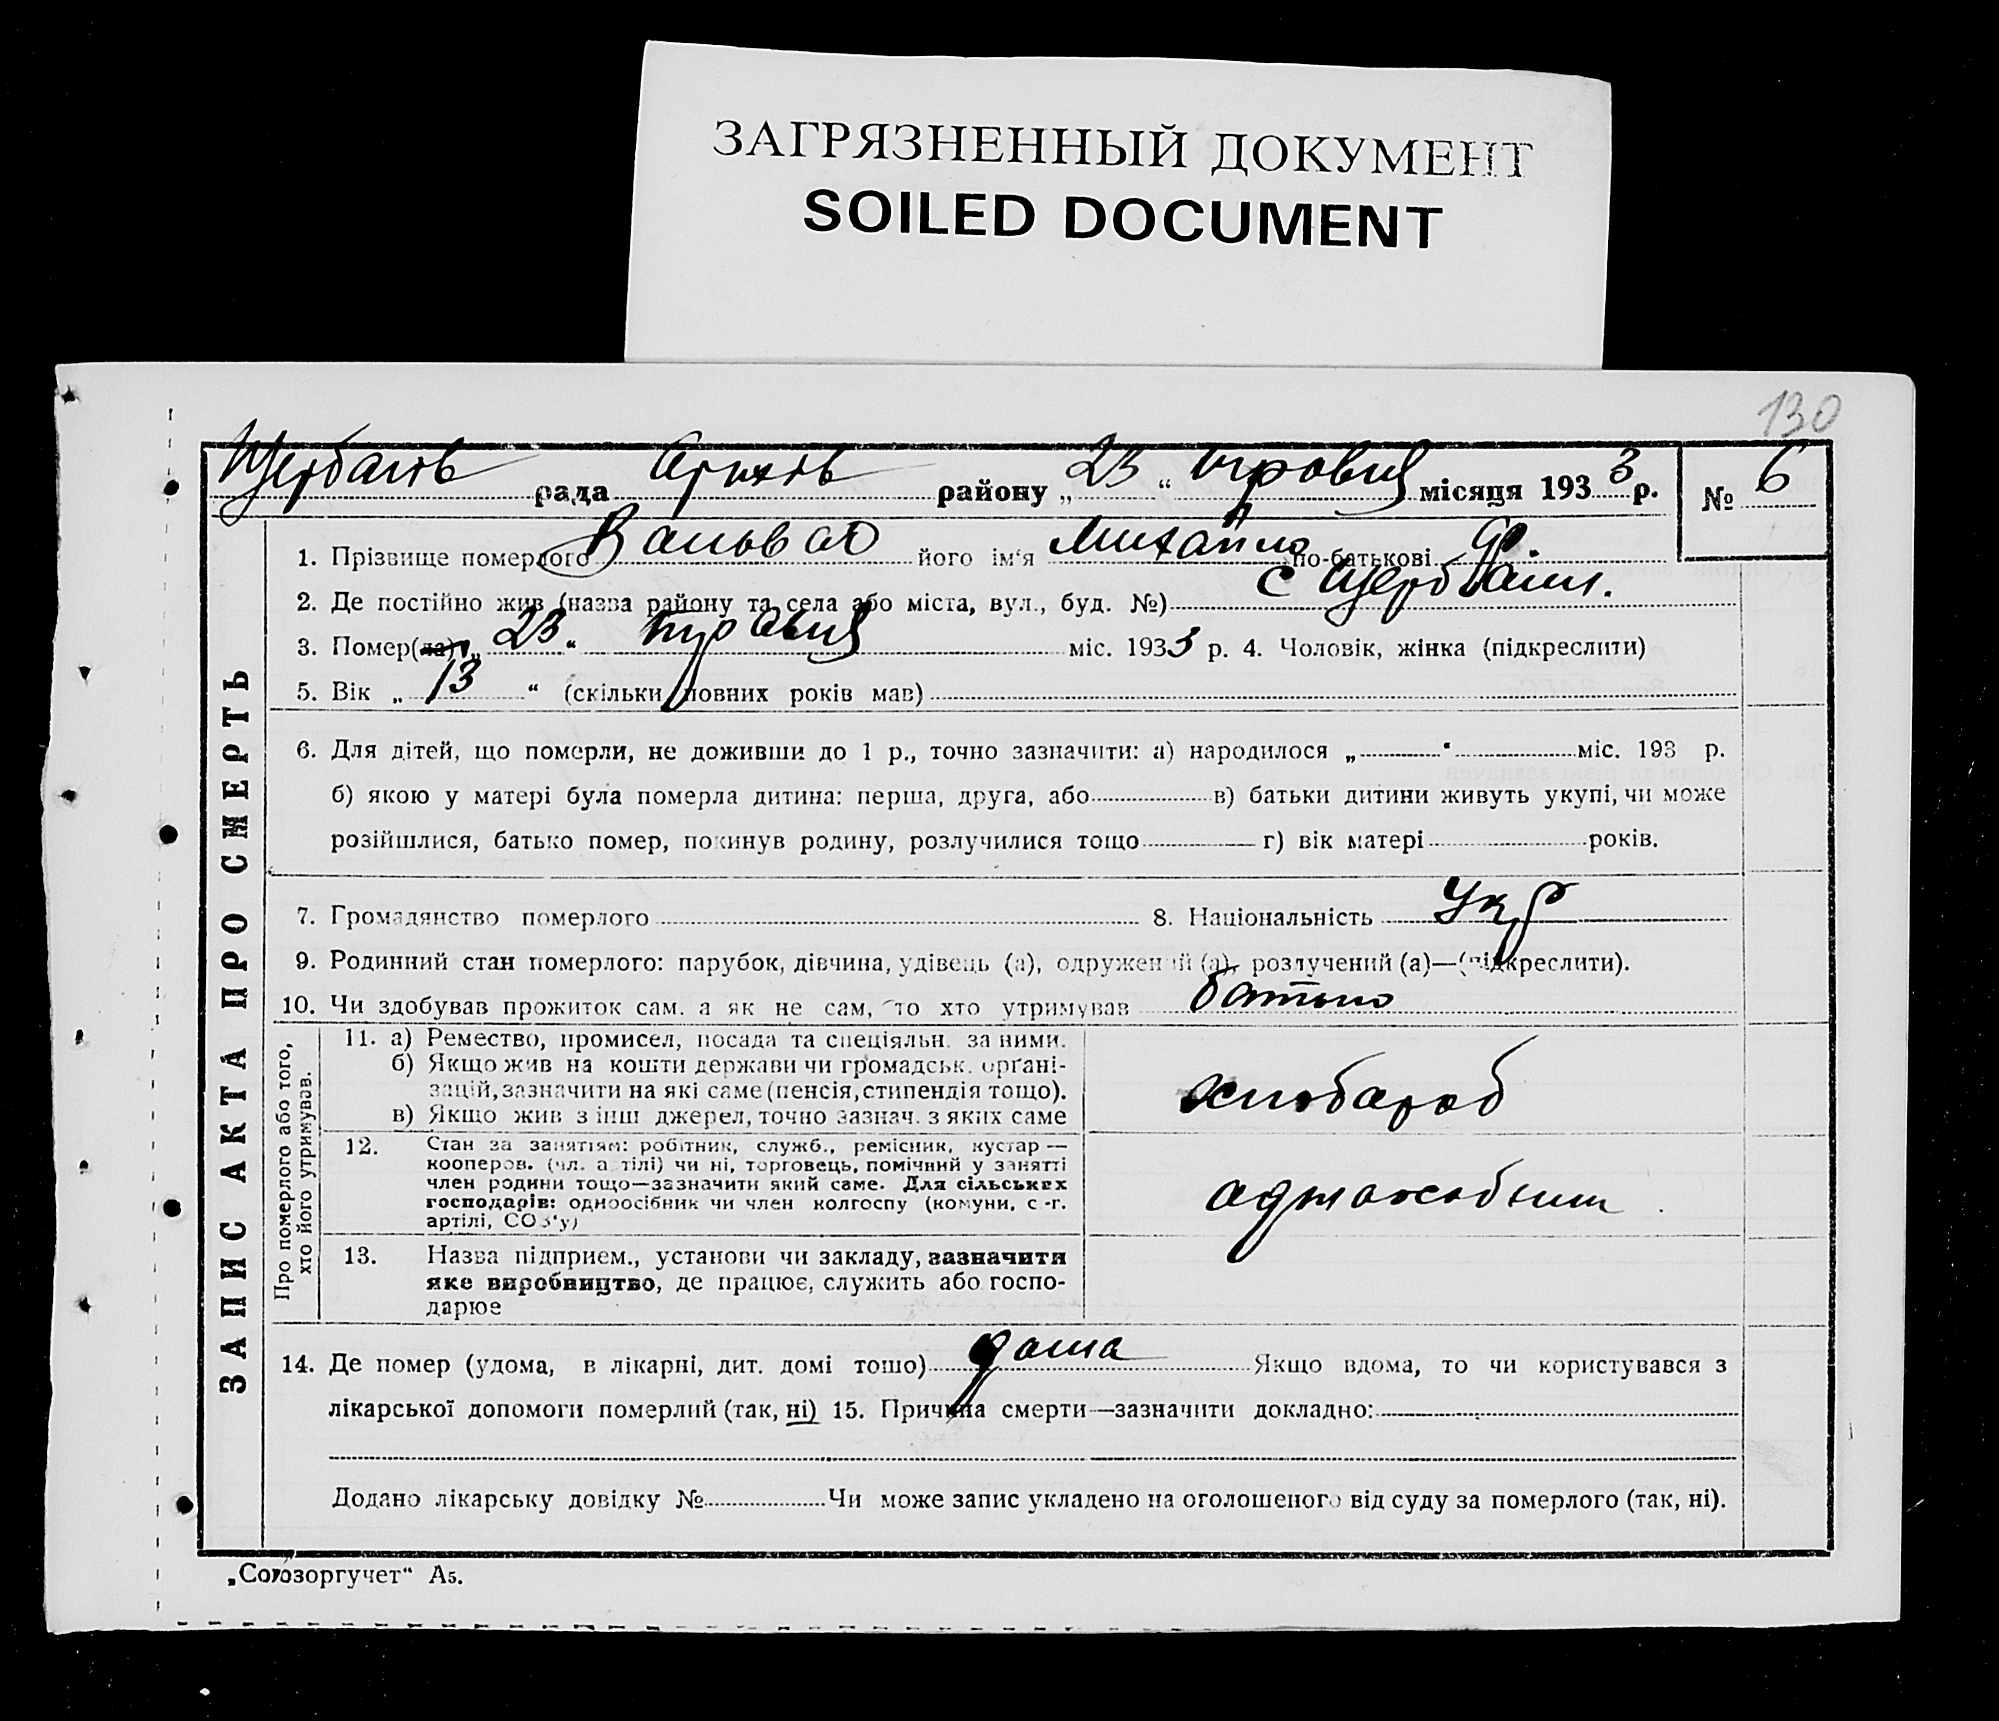 ЗАГРЯЗНЕННЫЙ ДОКУМЕНТ
SOILED DOCUMENT
130
рада району „ 23 “ місяця 1933 р. № 6
1. Прізвище померлого його ім'я Михайло по-батькові
2. Де постійно жив (назва району та села або міста, вул., буд. №) с
3. Помер(ла) „ 23 “ травня міс. 1933 р. 4. Чоловік, жінка (підкреслити)
5. Вік „ 13 “ (скільки повних років мав)
6. Для дітей, що померли, не доживши до 1 р., точно зазначити: а) народилося „ “ міс. 193 р.
б) якою у матері була померла дитина: перша, друга, або в) батьки дитини живуть укупі, чи може
розійшлися, батько помер, покинув родину, розлучилися тощо г) вік матері років.
7. Громадянство померлого 8. Національність Укр
9. Родинний стан померлого: парубок, дівчина, удівець (а), одружений (а), розлучений (а)—(підкреслити).
10. Чи здобував прожиток сам, а як не сам, то хто утримував батько
ЗАПИС АКТА ПРО СМЕРТЬ
Про померлого або того,
хто його утримував.
11. а) Ремество, промисел, посада та спеціяльн. за ними.
б) Якщо жив на кошти держави чи громадськ. орґані-
зацій, зазначити на які саме (пенсія, стипендія тощо).
в) Якщо жив з інш джерел, точно зазнач. з яких саме
хлібароб
12. Стан за заняттям: робітник, служб., ремісник, кустар —
кооперов. (чл. артілі) чи ні, торговець, помічний у занятті
член родини тощо—зазначити який саме. Для сільських
господарів: одноосібник чи член колгоспу (комуни, с.-г.
артілі, СОЗ'у)
13. Назва підприєм., установи чи закладу, зазначити
яке виробництво, де працює, служить або госпо-
дарює
14. Де помер (удома, в лікарні, дит. домі тощо) дома Якщо вдома, то чи користувався з
лікарської допомоги померлий (так, ні) 15. Причина смерти—зазначити докладно:
Додано лікарську довідку № Чи може запис укладено на оголошеного від суду за померлого (так, ні).
„Союзоргучет“ А5.